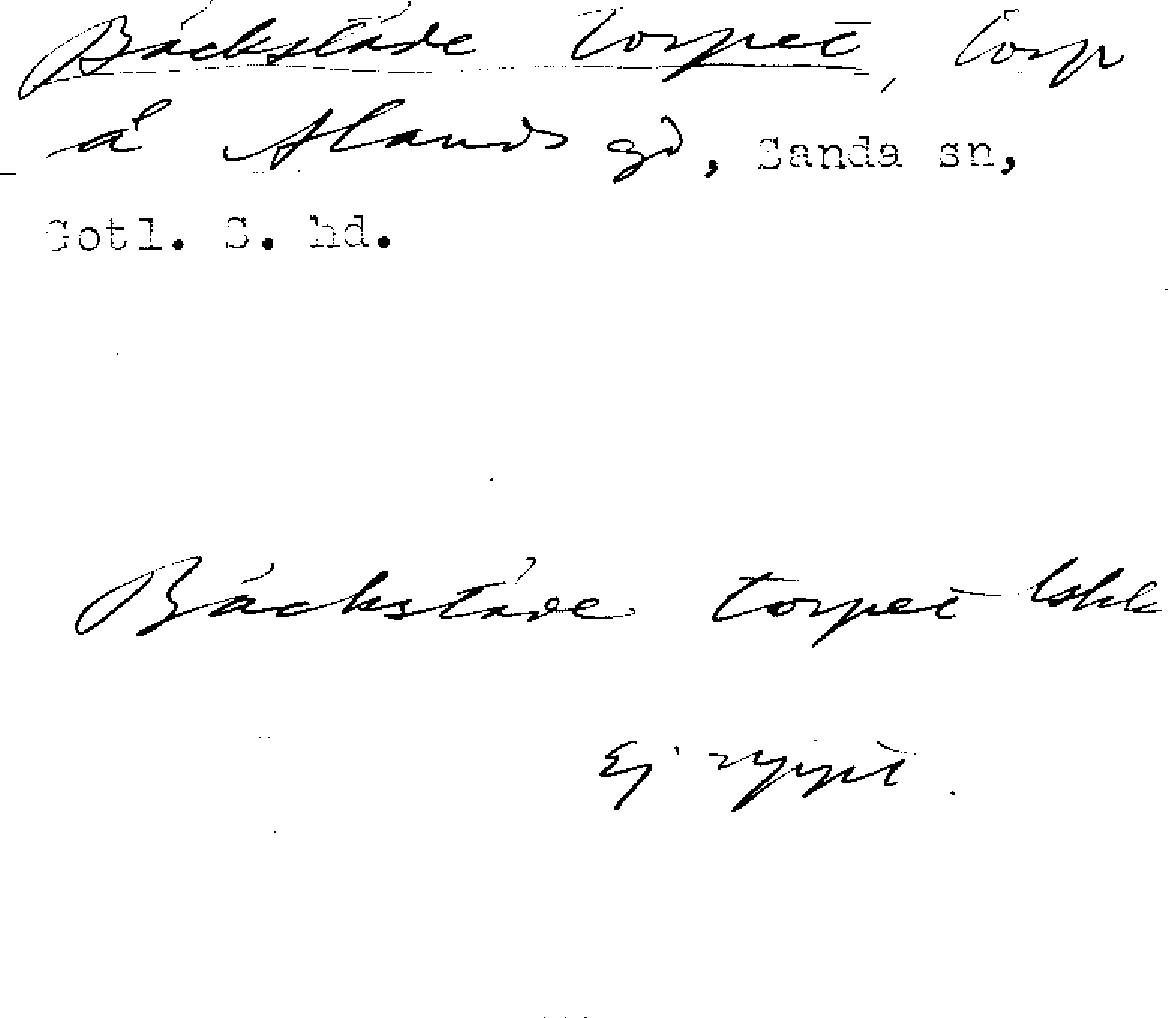 Bäckstäde torpet, torp
å Alands gd, Sanda sn,
Gotl. S. hd.
Bäckstäde torpet lskk
Ej nytt.